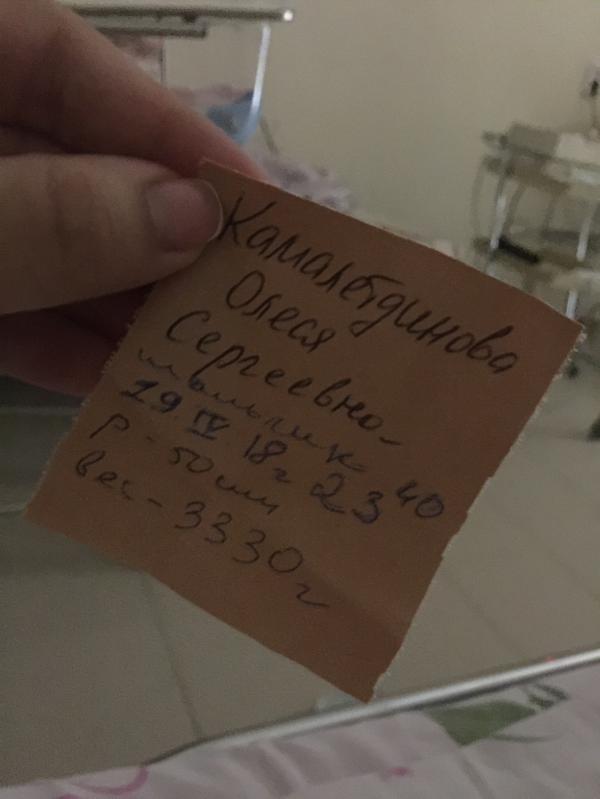 Камалетдинова
Олеся
Сергеевна
мальчик
19 IV 18г 23 40
р - 50 см
вес - 3330 г